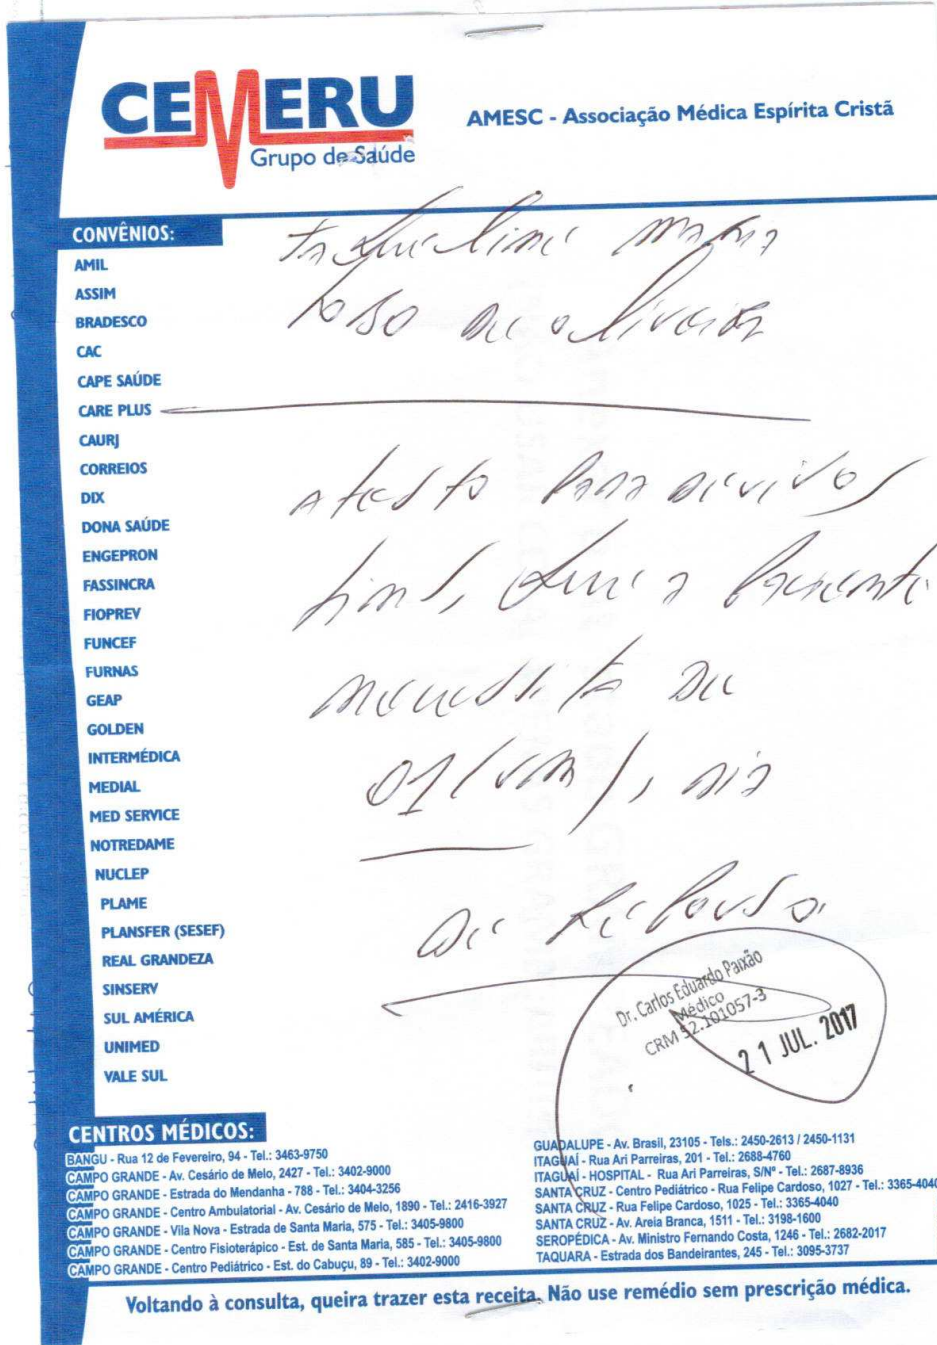 CEMERU
Grupo de Saúde
AMESC - Associação Médica Espírita Cristã
CONVÊNIOS:
AMIL
ASSIM
BRADESCO
CAC
CAPE SAÚDE
CARE PLUS
CAURJ
CORREIOS
DIX
DONA SAÚDE
ENGEPRON
FASSINCRA
FIOPREV
FUNCEF
FURNAS
GEAP
GOLDEN
INTERMÉDICA
MEDIAL
MED SERVICE
NOTREDAME
NUCLEP
PLAME
PLANSFER (SESEF)
REAL GRANDEZA
SINSERV
SUL AMÉRICA
UNIMED
VALE SUL
Maria
de Oliveira
Atesto para devidos
fins, que a paciente
necessita de
01 (um), dia
de repouso
Dr. Carlos Eduardo Paixão
Médico
CRM 52.101057-3
21 JUL. 2017
CENTROS MÉDICOS:
BANGU - Rua 12 de Fevereiro, 94 - Tel.: 3463-9750
CAMPO GRANDE - Av. Cesário de Melo, 2427 - Tel.: 3402-9000
CAMPO GRANDE - Estrada do Mendanha - 788 - Tel.: 3404-3256
CAMPO GRANDE - Centro Ambulatorial - Av. Cesário de Melo, 1890 - Tel.: 2416-3927
CAMPO GRANDE - Vila Nova - Estrada de Santa Maria, 575 - Tel.: 3405-9800
CAMPO GRANDE - Centro Fisioterápico - Est. de Santa Maria, 585 - Tel.: 3405-9800
CAMPO GRANDE - Centro Pediátrico - Est. do Cabuçu, 89 - Tel.: 3402-9000
GUADALUPE - Av. Brasil, 23105 - Tels.: 2450-2613 / 2450-1131
ITAGUAÍ - Rua Ari Parreiras, 201 - Tel.: 2688-4760
ITAGUAÍ - HOSPITAL - Rua Ari Parreiras, S/Nº - Tel.: 2687-8936
SANTA CRUZ - Centro Pediátrico - Rua Felipe Cardoso, 1027 - Tel.: 3365-4040
SANTA CRUZ - Rua Felipe Cardoso, 1025 - Tel.: 3365-4040
SANTA CRUZ - Av. Areia Branca, 1511 - Tel.: 3198-1600
SEROPÉDICA - Av. Ministro Fernando Costa, 1246 - Tel.: 2682-2017
TAQUARA - Estrada dos Bandeirantes, 245 - Tel.: 3095-3737
Voltando à consulta, queira trazer esta receita. Não use remédio sem prescrição médica.